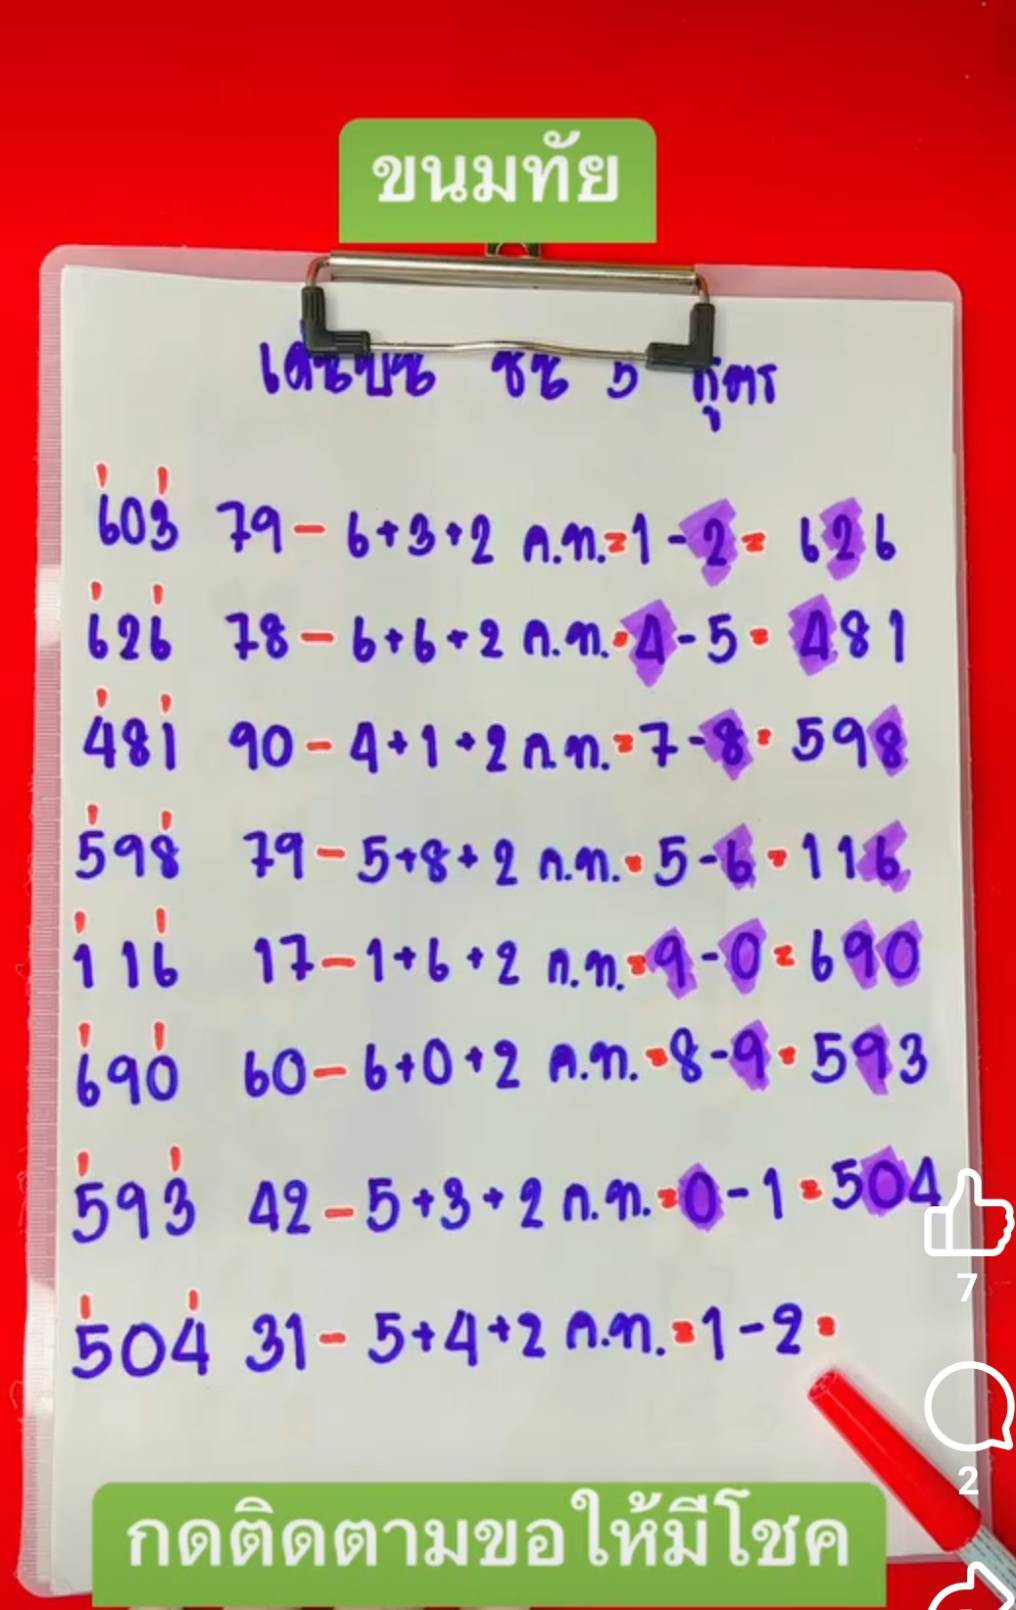 ขนมทัย
เด่นบน ชน 5 สูตร
603 79 - 6+3+2 ค.ท. = 1 - 2 = 626
626 78 - 6+6+2 ค.ท. = 4 - 5 = 481
481 90 - 4+1+2 ค.ท. = 7 - 8 = 598
598 79 - 5+8+2 ค.ท. = 5 - 6 = 116
116 17 - 1+6+2 ค.ท. = 9 - 0 = 690
690 60 - 6+0+2 ค.ท. = 8 - 9 = 593
593 42 - 5+3+2 ค.ท. = 0 - 1 = 504
7
504 31 - 5+4+2 ค.ท. = 1 - 2 =
2
กดติดตามขอให้มีโชค